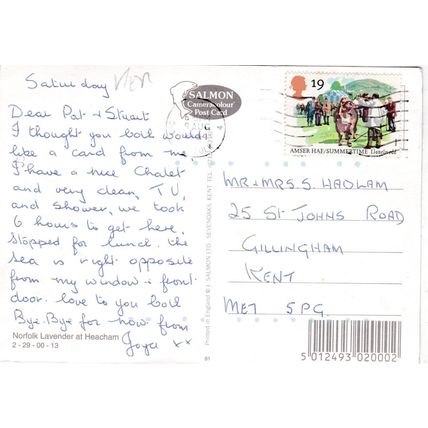 Saturday
Dear Pat & Stuart
I thought you both would
like a card from me
I have a nice Chalet
and very clean, T V,
and shower, we took
6 hours to get here,
stopped for lunch. the
sea is right opposite
from my window & front
door. love to you both
Bye. Bye for now from
Joyce xx
Norfolk Lavender at Heacham
2 - 29 - 00 - 13
SALMON
Cameracolour
Post Card
Printed in England © J. SALMON LTD. SEVENOAKS, KENT TEL
61
19
AMSER HAF/SUMMERTIME Llanelwedd
MR & MRS. S. HADLAM
25 St JOHNS ROAD
GILLINGHAM
KENT
ME7 5PG.
5 012493 020002